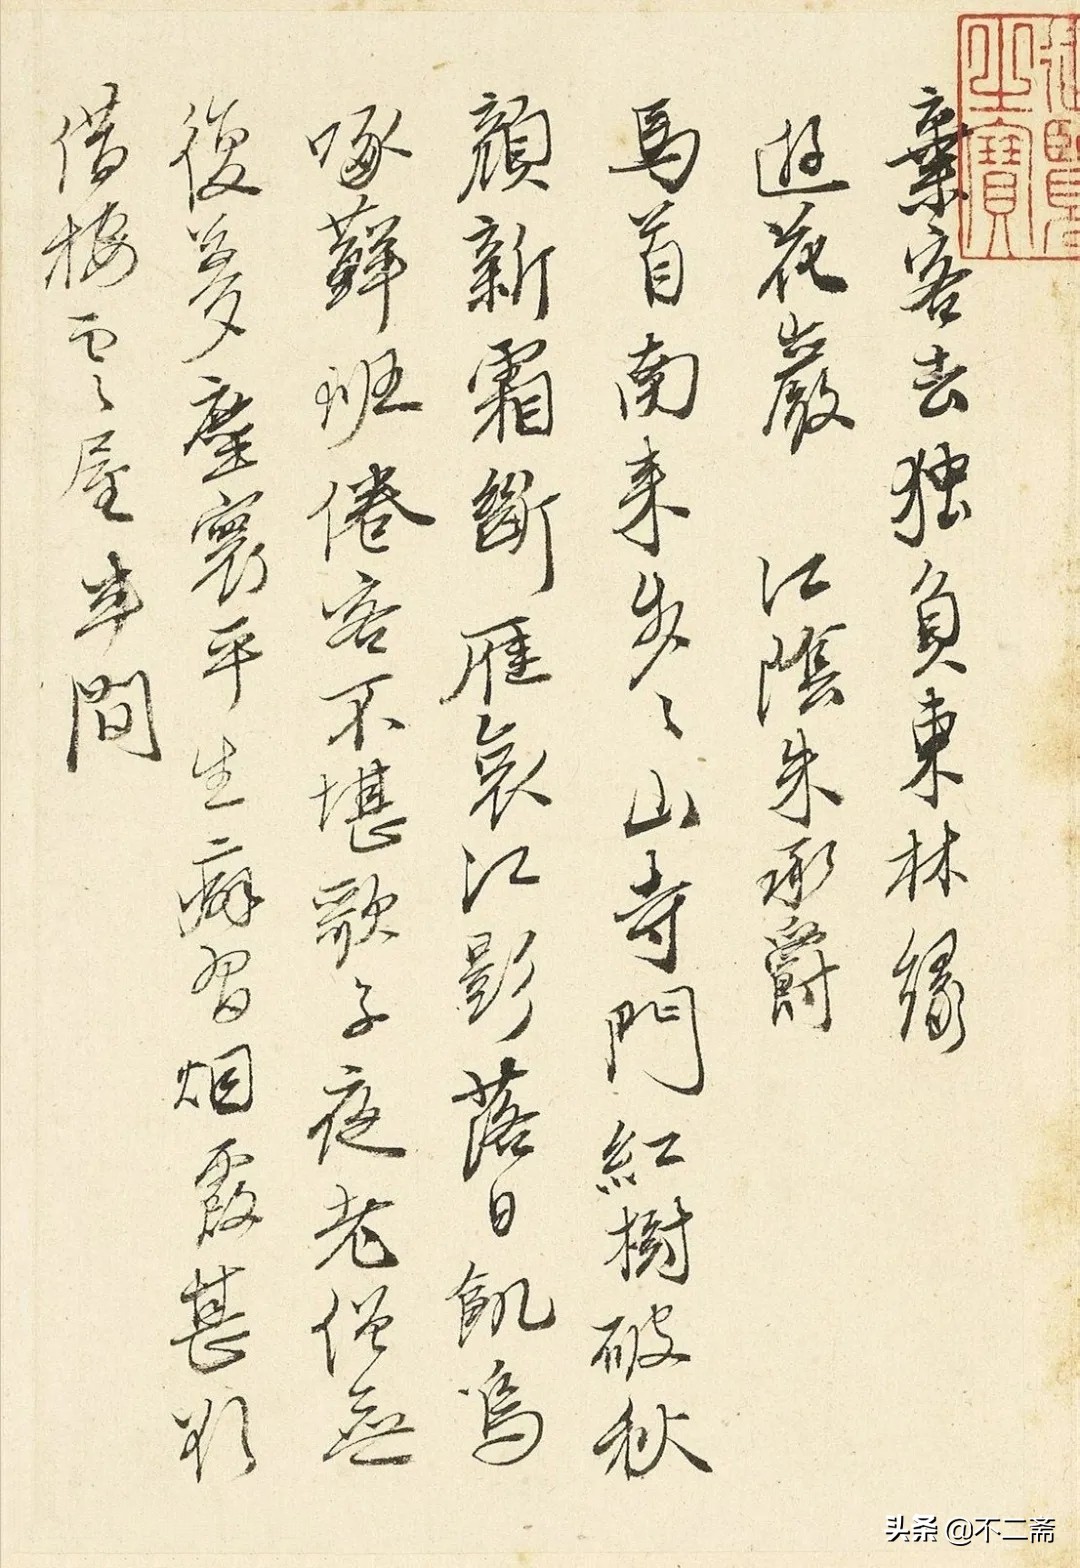 棄客去独負東林緣
遊花巖　江陰朱承爵
馬首南来步〻山寺門紅樹破秋
顔新霜斷雁哀江影落日飢烏
啄蘚班倦客不堪歌子夜老僧無
復夢塵寰平生癖習烟霞甚欲
借棲雲屋半間
御覽之寶
头条 @不二斋